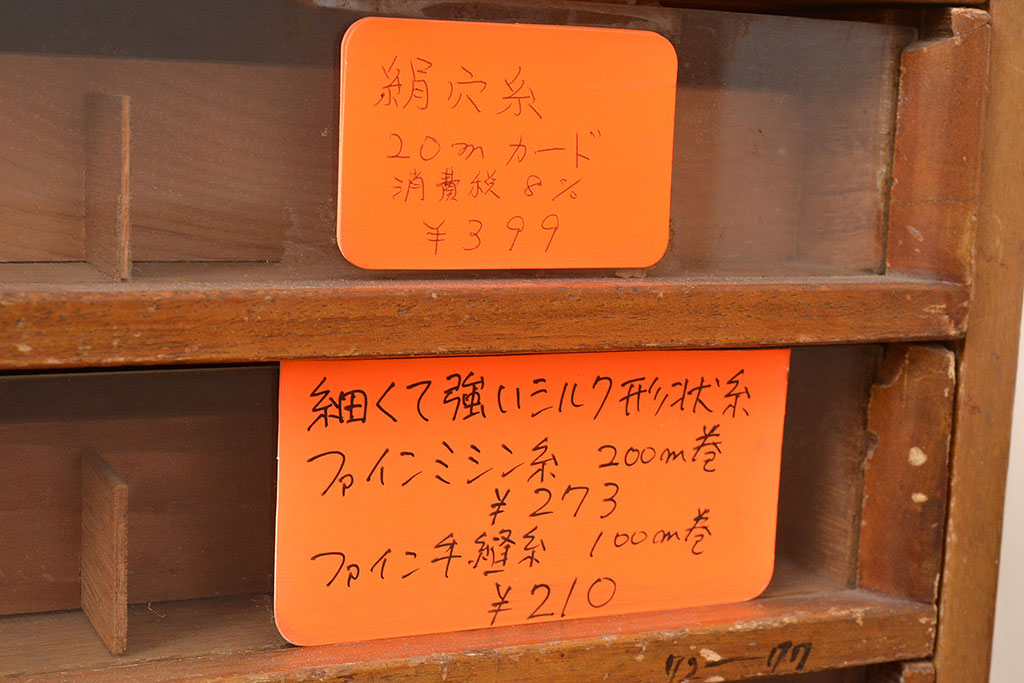 絹穴糸
20mカード
消費税8%
¥399
細くて強いシルク形状糸
ファインミシン糸 200m巻
¥273
ファイン手縫糸 100m巻
¥210
72-77